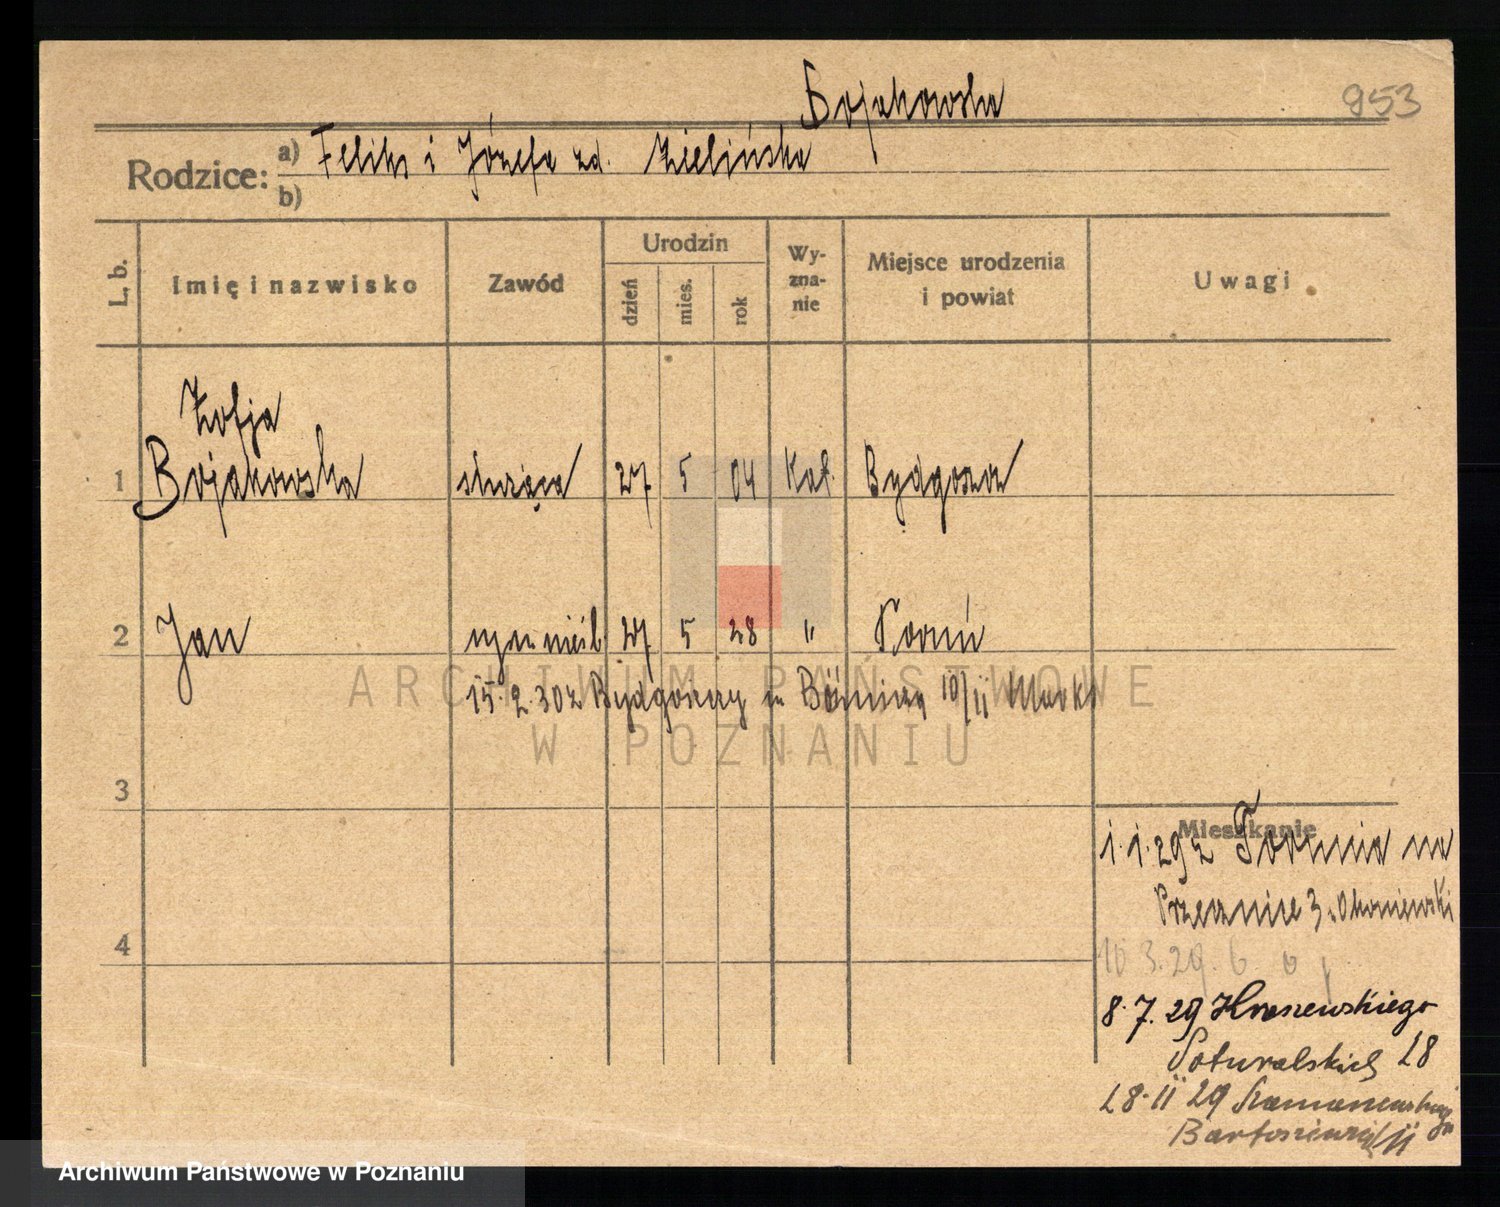 Bojakowska
953
Rodzice:
a) Feliks i Józefa zd. Zielińska
b)
L. b.
Imię i nazwisko
Zawód
Urodzin
dzień
mies.
rok
Wy-
zna-
nie
Miejsce urodzenia
i powiat
Uwagi
Zofja
1 Bojakowska służąca 27 5 04 Kat. Bydgoszcz
2 Jan 27 5 28 " Toruń
15.2.30 z Bydgoszczy
3
Mieszkanie
1.1.29 z Torunia na
Przecznice 3
4
10 3.29. 6
8.7.29 Kraszewskiego
28
28.11 29
ARCHIWUM PAŃSTWOWE
W POZNANIU
Archiwum Państwowe w Poznaniu